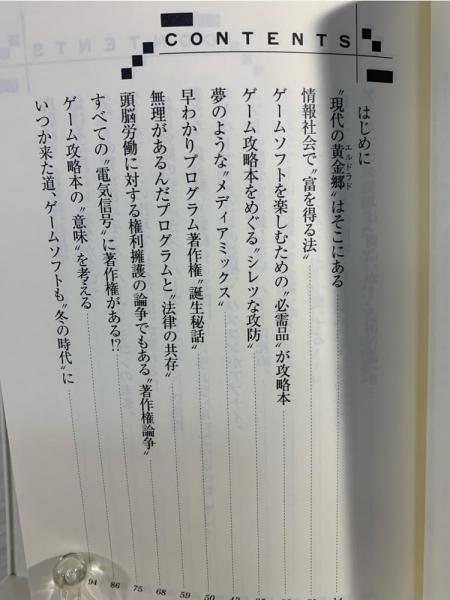 CONTENTS
はじめに
“現代の黄金郷〟はそこにある
エルドラド
情報社会で“富を得る法〟
ゲームソフトを楽しむための“必需品〟が攻略本
ゲーム攻略本をめぐる“シレツな攻防〟
夢のような“メディアミックス〟
早わかりプログラム著作権“誕生秘話〟
無理があるんだプログラムと“法律の共存〟
頭脳労働に対する権利擁護の論争でもある“著作権論争〟
すべての“電気信号〟に著作権がある!?
ゲーム攻略本の“意味〟を考える
いつか来た道、ゲームソフトも“冬の時代〟に
94 86 75 68 59 50